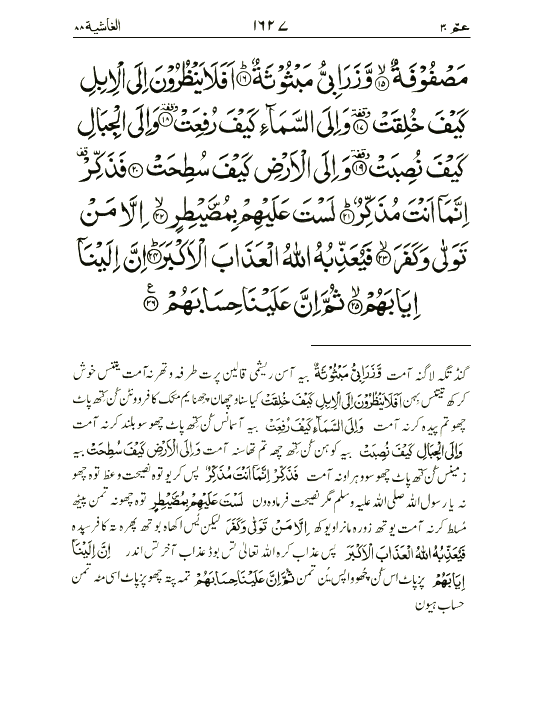 عمّ ۳۰ ۱۶۲۷ الغاشية ۸۸
مَصْفُوْفَةٌ ۙ﴿۱۵﴾ وَّزَرَابِیُّ مَبْثُوْثَةٌ ؕ﴿۱۶﴾ اَفَلَا یَنْظُرُوْنَ اِلَی الْاِبِلِ
كَیْفَ خُلِقَتْ ۥ﴿۱۷﴾ وَاِلَی السَّمَآءِ كَیْفَ رُفِعَتْ ۥ﴿۱۸﴾ وَاِلَی الْجِبَالِ
كَیْفَ نُصِبَتْ ۥ﴿۱۹﴾ وَاِلَی الْاَرْضِ كَیْفَ سُطِحَتْ ﴿۲۰﴾ فَذَكِّرْ
اِنَّمَاۤ اَنْتَ مُذَكِّرٌ ؕ﴿۲۱﴾ لَسْتَ عَلَیْهِمْ بِمُصَۜیْطِرٍ ۙ﴿۲۲﴾ اِلَّا مَنْ
تَوَلّٰی وَكَفَرَ ۙ﴿۲۳﴾ فَیُعَذِّبُهُ اللّٰهُ الْعَذَابَ الْاَكْبَرَ ؕ﴿۲۴﴾ اِنَّ اِلَیْنَاۤ
اِیَابَهُمْ ۙ﴿۲۵﴾ ثُمَّ اِنَّ عَلَیْنَا حِسَابَهُمْ ﴿۲۶﴾
گنڈ تکہ لاگنہ آمت وَّزَرَابِیُّ مَبْثُوْثَةٌ بیہ آسن ریشمی قالین پرت طرفہ وتھرنہ آمت یتنس خوش
کرکھ تتنس بہن اَفَلَا یَنْظُرُوْنَ اِلَی الْاِبِلِ كَیْفَ خُلِقَتْ کیا سناہ چھان چھنا یم منکک کافر وونٹن کُن کتھ پاٹ
چھو تم پیدہ کرنہ آمت وَاِلَی السَّمَآءِ كَیْفَ رُفِعَتْ بیہ آسمانس کُن کتھ پاٹ چھو سو بلند کرنہ آمت
وَاِلَی الْجِبَالِ كَیْفَ نُصِبَتْ بیہ کوہن کُن کتھ چھہ تم تھانہ آمت وَاِلَی الْاَرْضِ كَیْفَ سُطِحَتْ بیہ
زمینس کُن کتھ پاٹ چھو سو وہراونہ آمت فَذَكِّرْ اِنَّمَاۤ اَنْتَ مُذَكِّرٌ پس کریو توہ نصیحت وعظ توہ چھو
نہ یا رسول اللہ صلی اللہ علیہ وسلم مگر نصیحت فرماوہ ون لَسْتَ عَلَیْهِمْ بِمُصَۜیْطِرٍ توہ چھونہ تمن پیٹھ
مُسلط کرنہ آمت یوتھ زورہ مانراویوکھ اِلَّا مَنْ تَوَلّٰی وَكَفَرَ لیکن یُس اکھاہ بوتھ پھرہ تہ کافر سپدہ
فَیُعَذِّبُهُ اللّٰهُ الْعَذَابَ الْاَكْبَرَ پس عذاب کرہ اللہ تعالیٰ تس بوڈ عذاب آخرتس اندر اِنَّ اِلَیْنَاۤ
اِیَابَهُمْ پزپاٹ اسی کُن چھو واپس یُن تمن ثُمَّ اِنَّ عَلَیْنَا حِسَابَهُمْ تمہ پتہ چھو پزپاٹ اسی منہ تمن
حساب ہیون